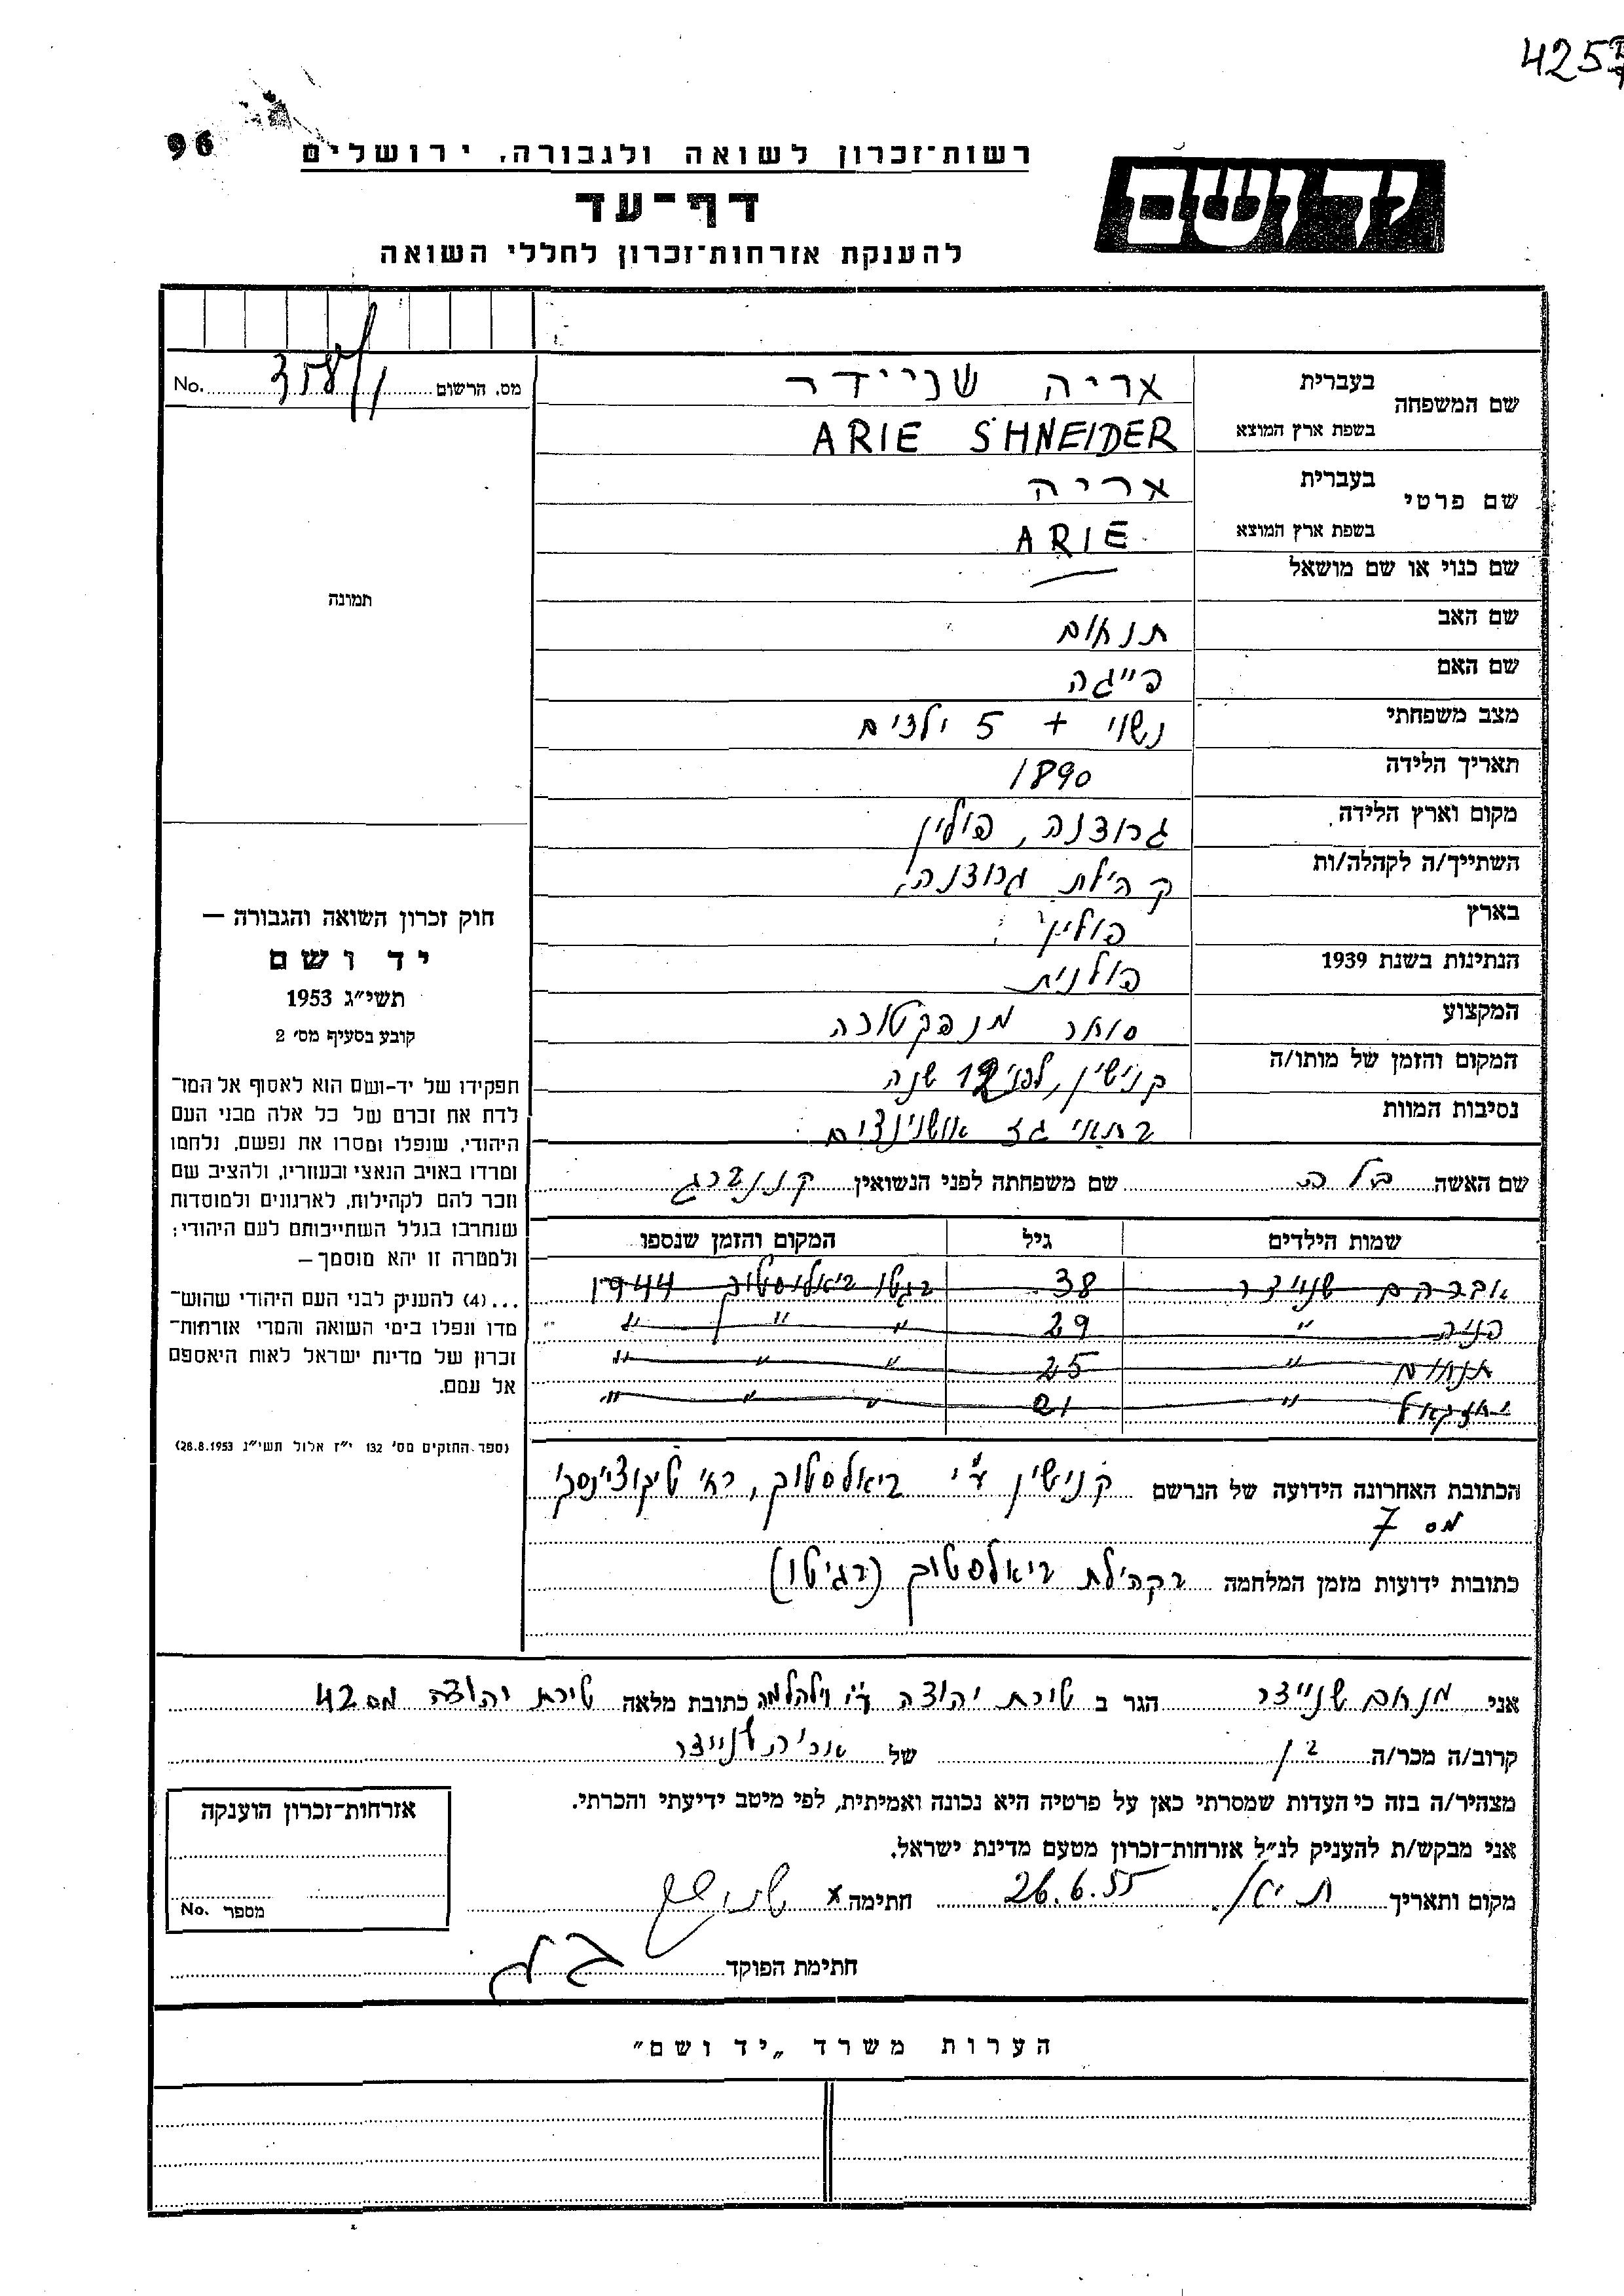 425
96
רשות־זכרון לשואה ולגבורה, ירושלים
יד ושם
דף־עד
להענקת אזרחות־זכרון לחללי השואה
מס. הרשום No.
שם המשפחה בעברית אריה שניידר
בשפת ארץ המוצא ARIE SHNEIDER
שם פרטי בעברית אריה
בשפת ארץ המוצא ARIE
שם כנוי או שם מושאל —
שם האב תנחום
שם האם פייגה
מצב משפחתי נשוי + 5 ילדים
תאריך הלידה 1890
מקום וארץ הלידה גרודנה, פולין
השתייך/ה לקהלה/ות קהילת גרודנה
בארץ פולין
הנתינות בשנת 1939 פולנית
המקצוע סוחר מנפקטורה
המקום והזמן של מותו/ה קנישין, לפני 12 שנה
נסיבות המוות בתאי גז אושוינצים
שם האשה בלה שם משפחתה לפני הנשואין
שמות הילדים גיל המקום והזמן שנספו
אברהם שניידר 38 בגטו ביאליסטוק 1944
פניה " 29 " " "
תנחום " 25 " " "
יחזקאל " 21 " " "
הכתובת האחרונה הידועה של הנרשם קנישין ע"י ביאלסטוק, רח' טיקוצינסקי
מס 7
כתובות ידועות מזמן המלחמה בקהילת ביאלסטוק (בגיטו)
תמונה
חוק זכרון השואה והגבורה —
יד ושם
תשי״ג 1953
קובע בסעיף מס׳ 2
תפקידו של יד-ושם הוא לאסוף אל המו־
לדת את זכרם של כל אלה מבני העם
היהודי, שנפלו ומסרו את נפשם, נלחמו
ומרדו באויב הנאצי ובעוזריו, ולהציב שם
וזכר להם לקהילות, לארגונים ולמוסדות
שנחרבו בגלל השתייכותם לעם היהודי;
ולמטרה זו יהא מוסמך —
...(4) להעניק לבני העם היהודי שהוש־
מדו ונפלו בימי השואה והמרי אזרחות־
זכרון של מדינת ישראל לאות היאספם
אל עמם.
(ספר החוקים מס׳ 132 י״ז אלול תשי״ג 28.8.1953)
אני מנחם שניידר הגר ב טירת יהודה ע"י וילהלמה כתובת מלאה טירת יהודה מס 42
קרוב/ה מכר/ה בן של אריה שניידר
מצהיר/ה בזה כי העדות שמסרתי כאן על פרטיה היא נכונה ואמיתית, לפי מיטב ידיעתי והכרתי.
אני מבקש/ת להעניק לנ״ל אזרחות־זכרון מטעם מדינת ישראל.
מקום ותאריך 26.6.55 חתימה x
חתימת הפוקד
אזרחות־זכרון הוענקה
מספר No.
הערות משרד „יד ושם״